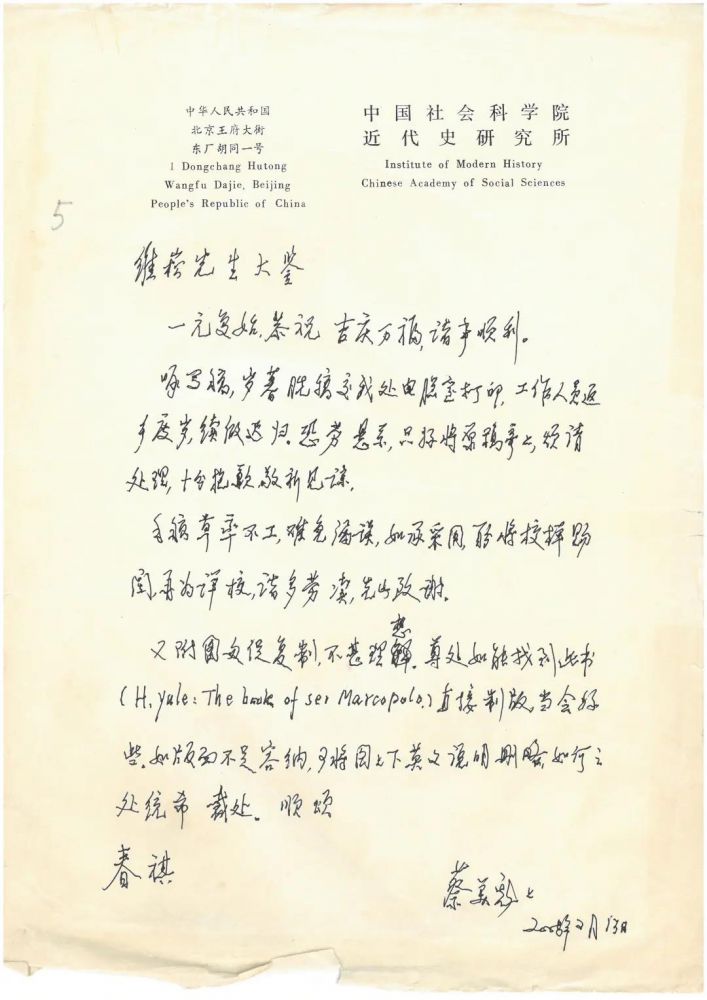 中华人民共和国
北京王府大街
东厂胡同一号
1 Dongchang Hutong
Wangfu Dajie, Beijing
People's Republic of China
中国社会科学院
近代史研究所
Institute of Modern History
Chinese Academy of Social Sciences
5
维崧先生大鉴
一元复始，恭祝 吉庆万福，诸事顺利。
岁暮脱稿交我处电脑室打印，工作人员返
乡度岁，续假迟归。恐劳悬系，只好将原稿寄上，烦请
处理，十分抱歉，敬祈见谅。
毛稿草率不工，难免漏误，如承采用，盼将校样赐
阅，再为详校，诸多劳渎，先此致谢。
又附图为复制，不甚理想。尊处如能找到此书
(H, Yule: The book of ser Marcopolo.) 直接制版，当会好
些。如版面不足容纳，可将图上下英文说明删略，如何之
处统希 裁处。顺颂
春祺
蔡美彪上
2008年2月13日